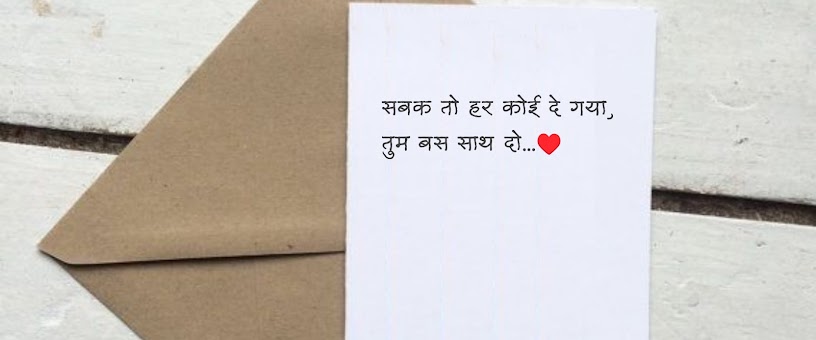 सबक तो हर कोई दे गया,
तुम बस साथ दो...❤️